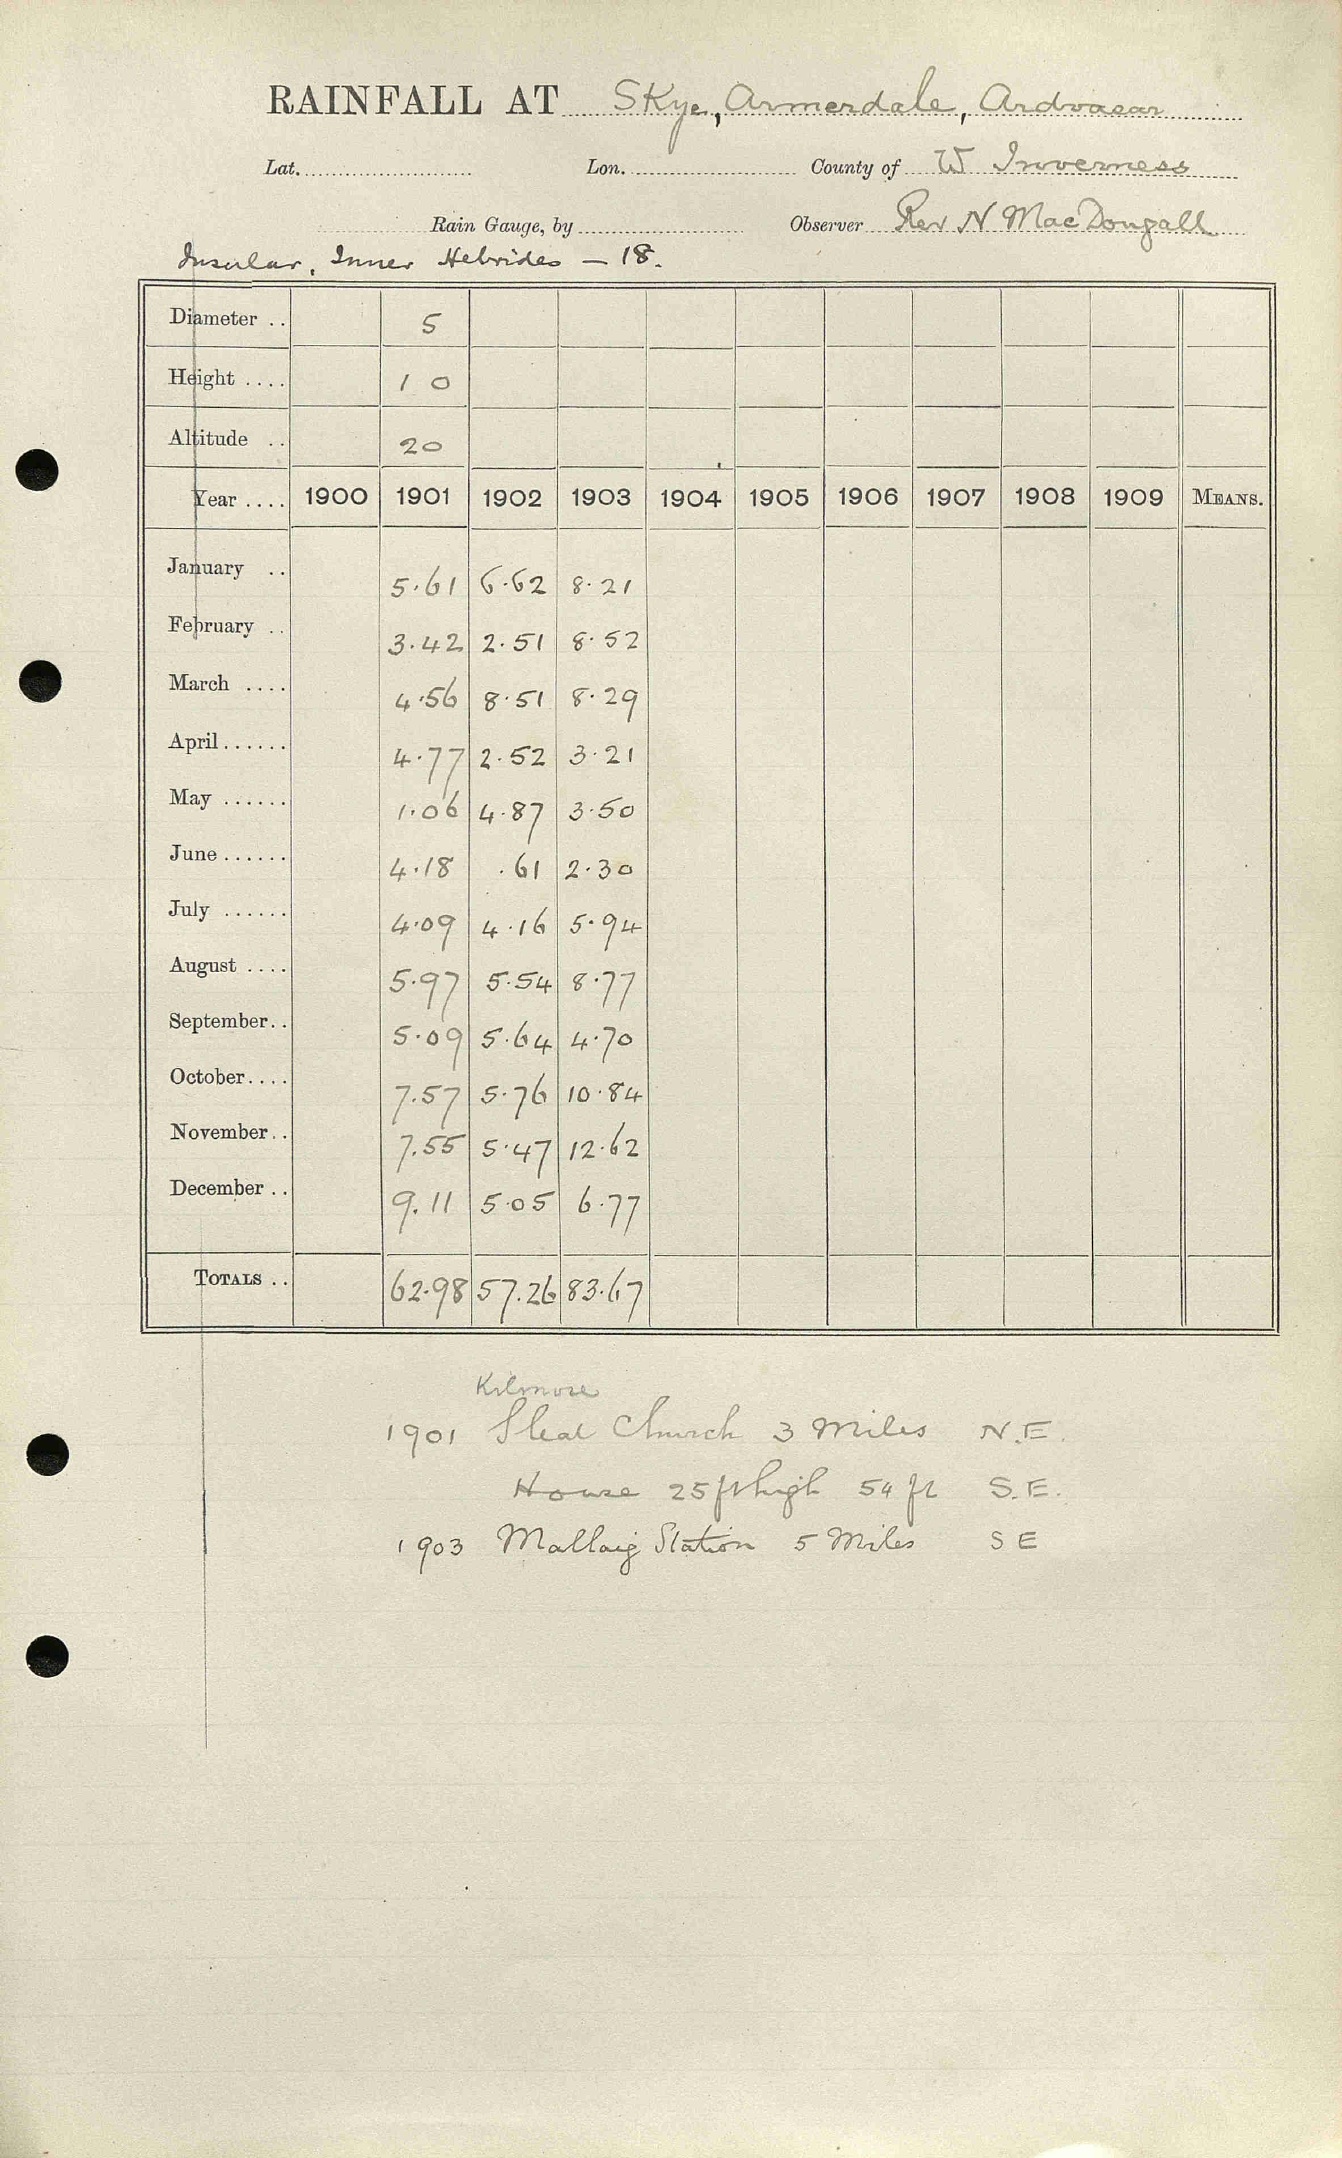 RAINFALL AT Skye, Armerdale, Ardvasar
Lat. Lon. County of W Inverness
Rain Gauge, by Observer Rev N MacDougall
Insular, Inner Hebrides — 18.
Diameter .. 5
Height .... 1 0
Altitude .. 20
Year .... 1900 1901 1902 1903 1904 1905 1906 1907 1908 1909 MEANS.
January .. 5.61 6.62 8.21
February .. 3.42 2.51 8.52
March .... 4.56 8.51 8.29
April...... 4.77 2.52 3.21
May ...... 1.06 4.87 3.50
June...... 4.18 .61 2.30
July ...... 4.09 4.16 5.94
August .... 5.97 5.54 8.77
September.. 5.09 5.64 4.70
October.... 7.57 5.76 10.84
November.. 7.55 5.47 12.62
December .. 9.11 5.05 6.77
TOTALS .. 62.98 57.26 83.67
Kilmore
1901 Sleat Church 3 Miles N.E.
House 25 ft high 54 ft S.E.
1903 Mallaig Station 5 Miles S E